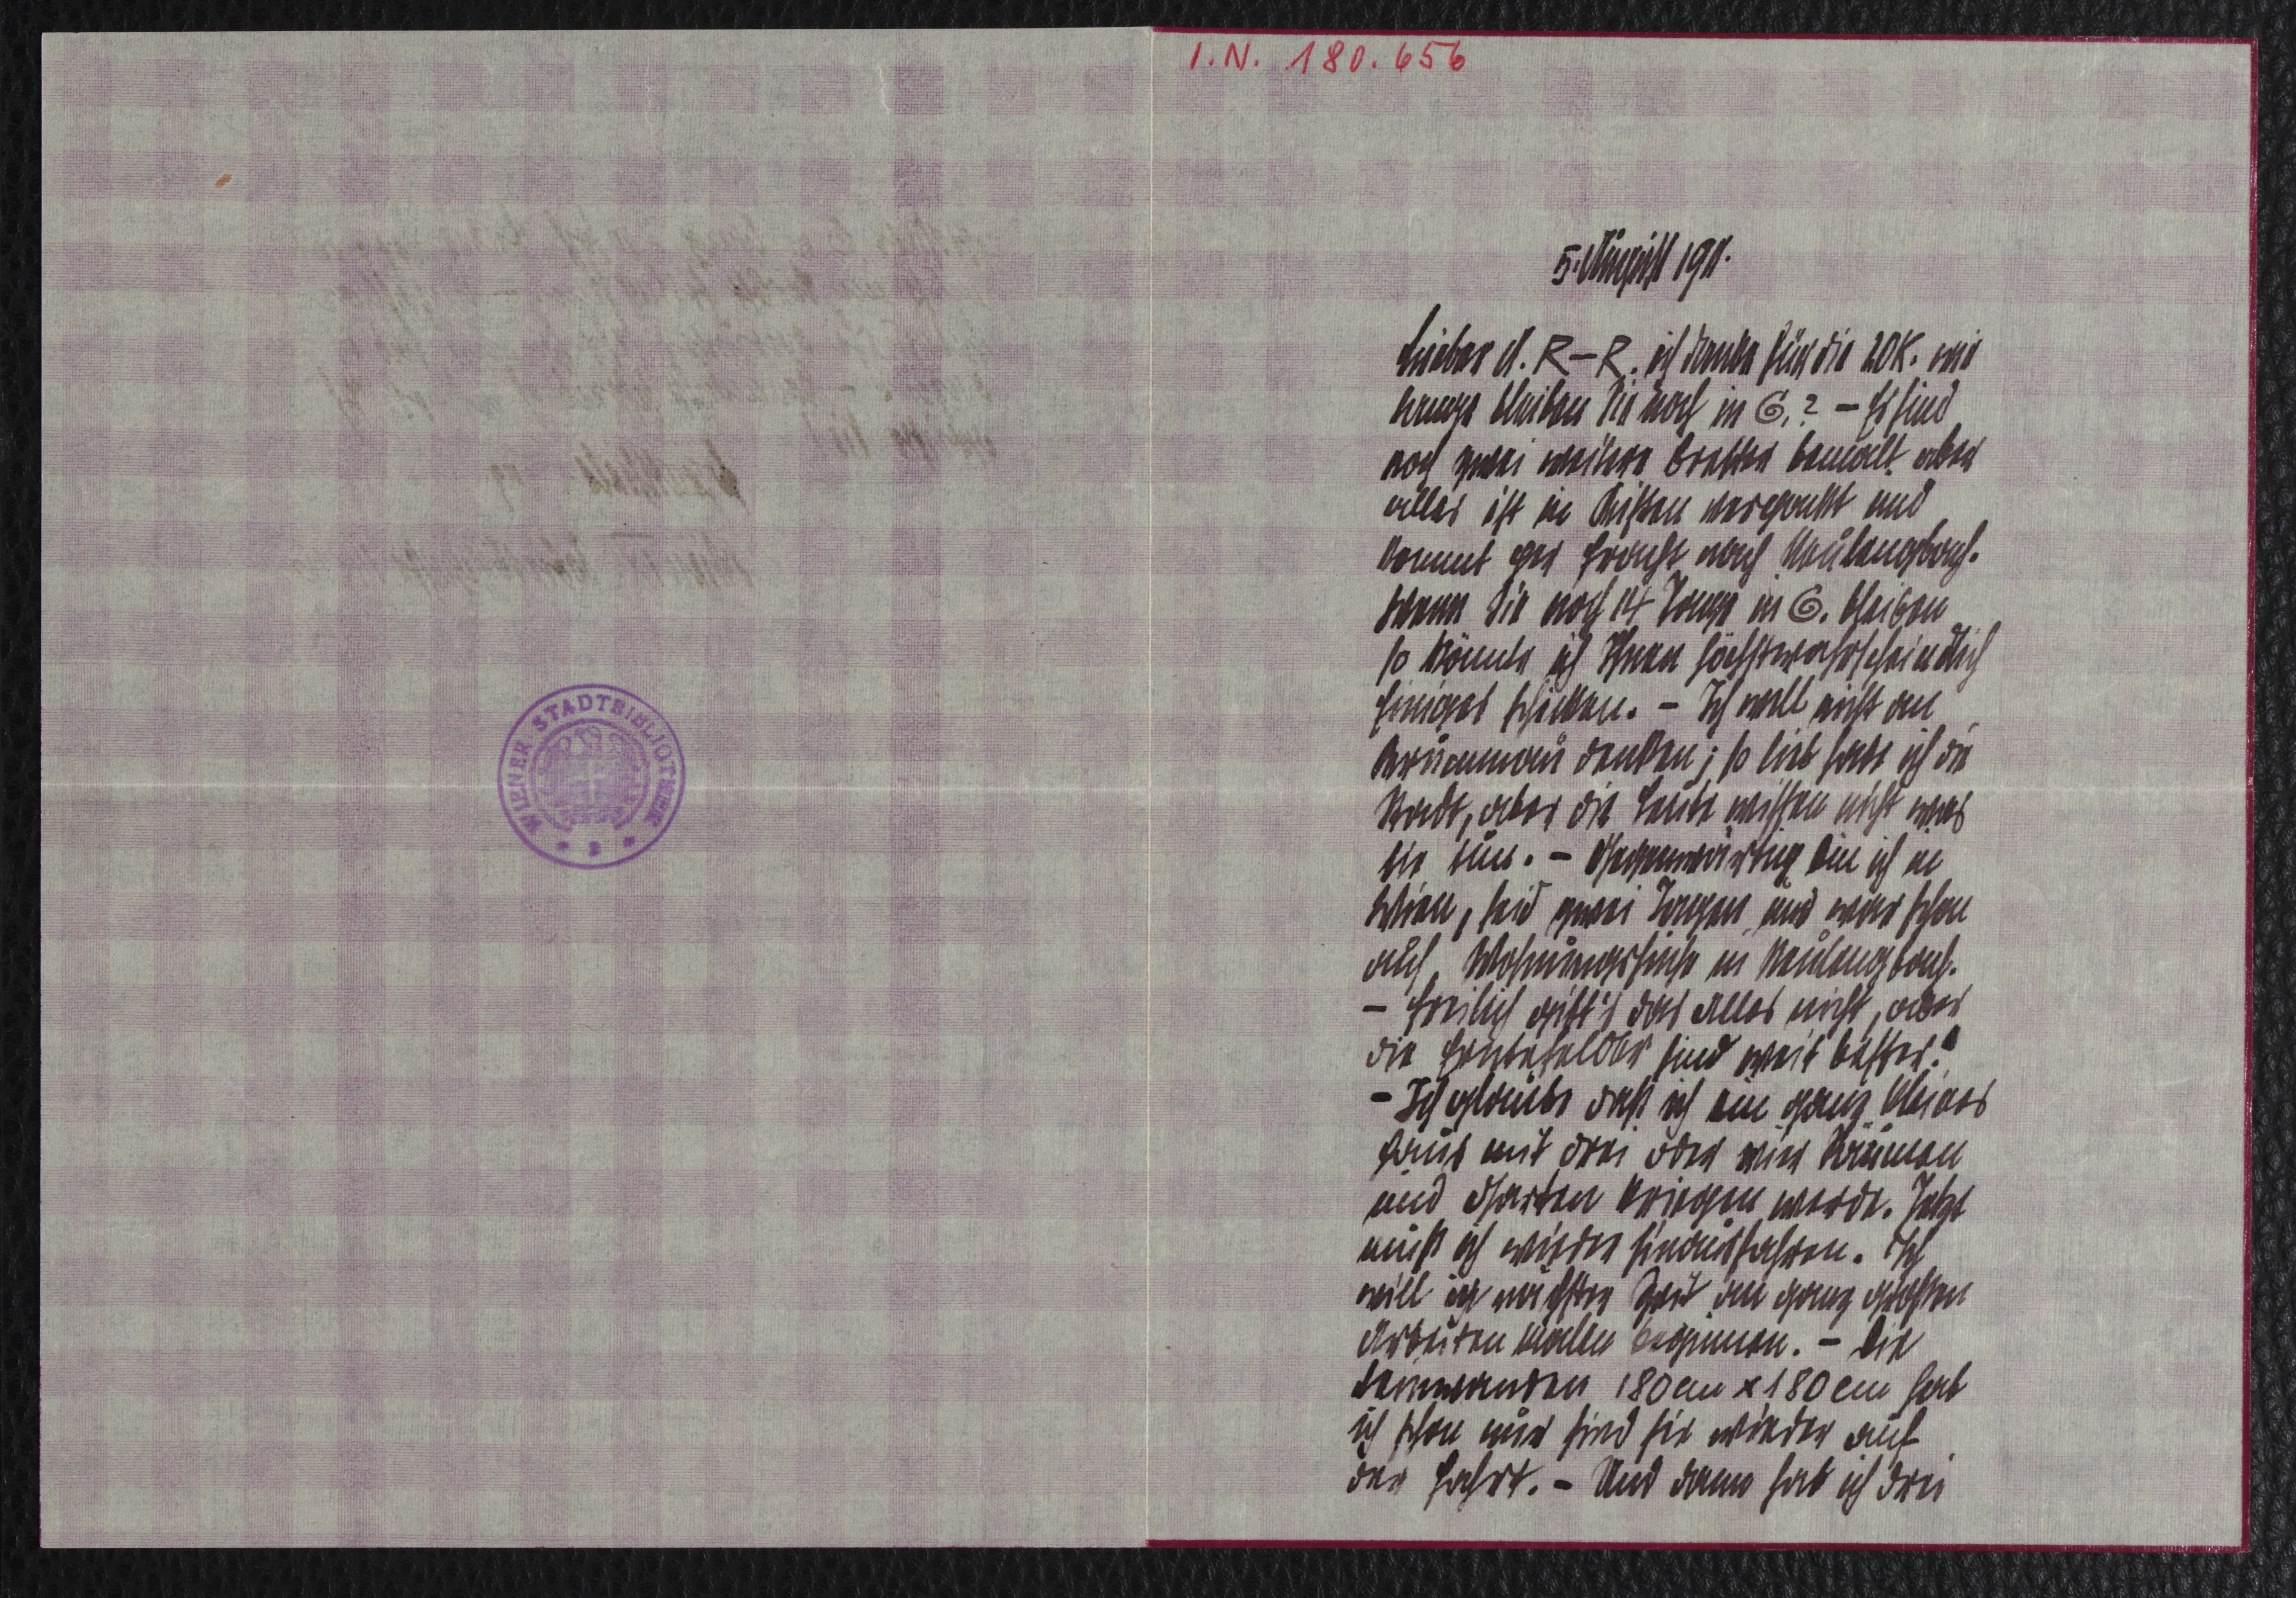 I.N. 180.656
5. August 1911.
Lieber A. R–R. ich danke für die 20K. wie
lange bleiben Sie noch in G.? – Es sind
noch zwei weitere Bretter bemalt aber
alles ist in Kisten verpackt und
kommt per Fracht nach Neulengbach.
Wenn Sie noch 14 Tage in G. bleiben
so könnte ich Ihnen höchstwahrscheindlich
Einiges schicken. – Ich will nicht an
Krummau denken; so lieb habe ich die
Stadt, aber die Leute wissen nicht was
sie tun. – Gegenwärtig bin ich in
Wien, seid zwei Tagen und war schon
auf Wohnungssuche in Neulengbach.
– Freilich gibt's das Alles nicht, aber
die Erntefelder sind weit besser!
– Ich glaube daß ich ein ganz kleines
Haus mit drei oder vier Räumen
und Garten kriegen werde. Jetzt
muß ich wieder hinausfahren. Ich
will in nächster Zeit an ganz großen
Arbeiten malen beginnen. – Die
Leinwanden 180cm x 180cm hab
ich schon nur sind sie wieder auf
der Fahrt. – Und dann hab ich drei
WIENER STADTBIBLIOTHEK